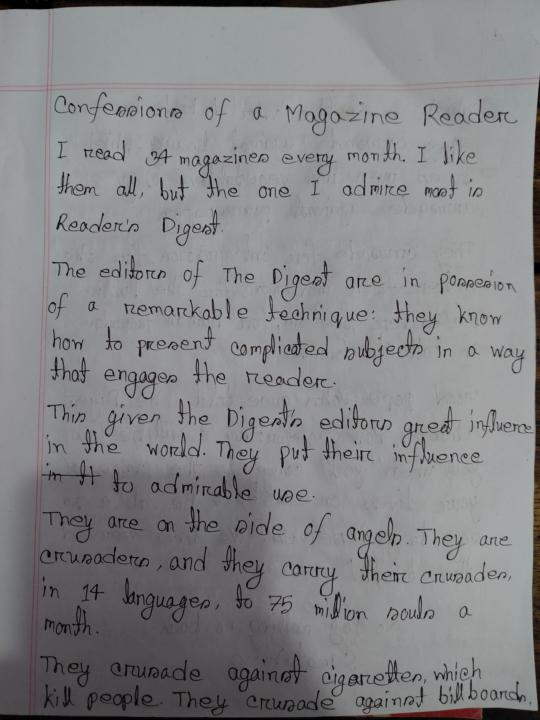 Confessions of a Magazine Reader
I read 34 magazines every month. I like
them all, but the one I admire most is
Reader's Digest.
The editors of The Digest are in possesion
of a remarkable technique: they know
how to present complicated subjects in a way
that engages the reader.
This gives the Digest's editors great influence
in the world. They put their influence
in tt to admirable use.
They are on the side of angels. They are
crusaders, and they carry their crusades,
in 14 languages, to 75 million souls a
month.
They crusade against cigarettes, which
kill people. They crusade against billboards,